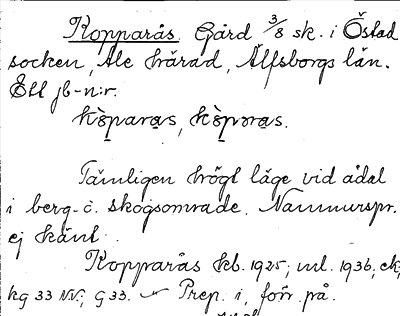 Kopparås Gård 3/8 sk. i Östad
socken, Ale härad, Älfsborgs län.
Ett jb-n:r.
kòparas, kòpəras.
Tämligen högt läge vid ådal
i berg- o. skogsområde. Namnurspr.
ej känt.
Kopparås kb. 1925; ml. 1936, ek,
hg 33 NV; G 33. – Prep. i, förr på.